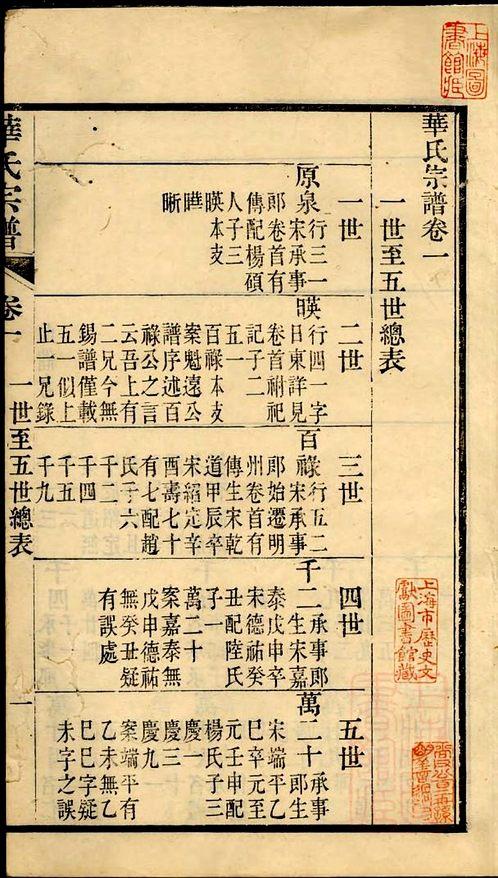 華氏宗譜卷一
一世至五世總表
一世
原泉行三一
宋承事
郎卷首有
傳配楊碩
人子三
暎本支
晰
二世
暎行四一字
日東詳見
卷首祔祀
記子二
五一
百祿本支
案魁遠公
譜序述百
祿公之言
云吾上有
二兄今無
錫譜僅載
五一似上
止一兄錄
三世
百祿行五二
宋承事
郎始遷明
州卷首有
傳生宋乾
道甲辰卒
宋紹定辛
酉壽七十
有七配趙
氏子六
千二
千四
千五
千九
四世
千二承事郎
生宋嘉
泰戊申卒
宋德祐癸
丑配陸氏
子一
萬二十
案嘉泰無
戊申德祐
無癸丑疑
有誤處
五世
萬二十承事
郎生
宋端平乙
巳卒元至
元壬申配
楊氏子三
慶一
慶三
慶九
案端平有
乙未無乙
巳巳字疑
未字之誤
華氏宗譜
卷一
一世至五世總表
一
上海圖
書館藏
上海市歷史文
獻圖書館藏